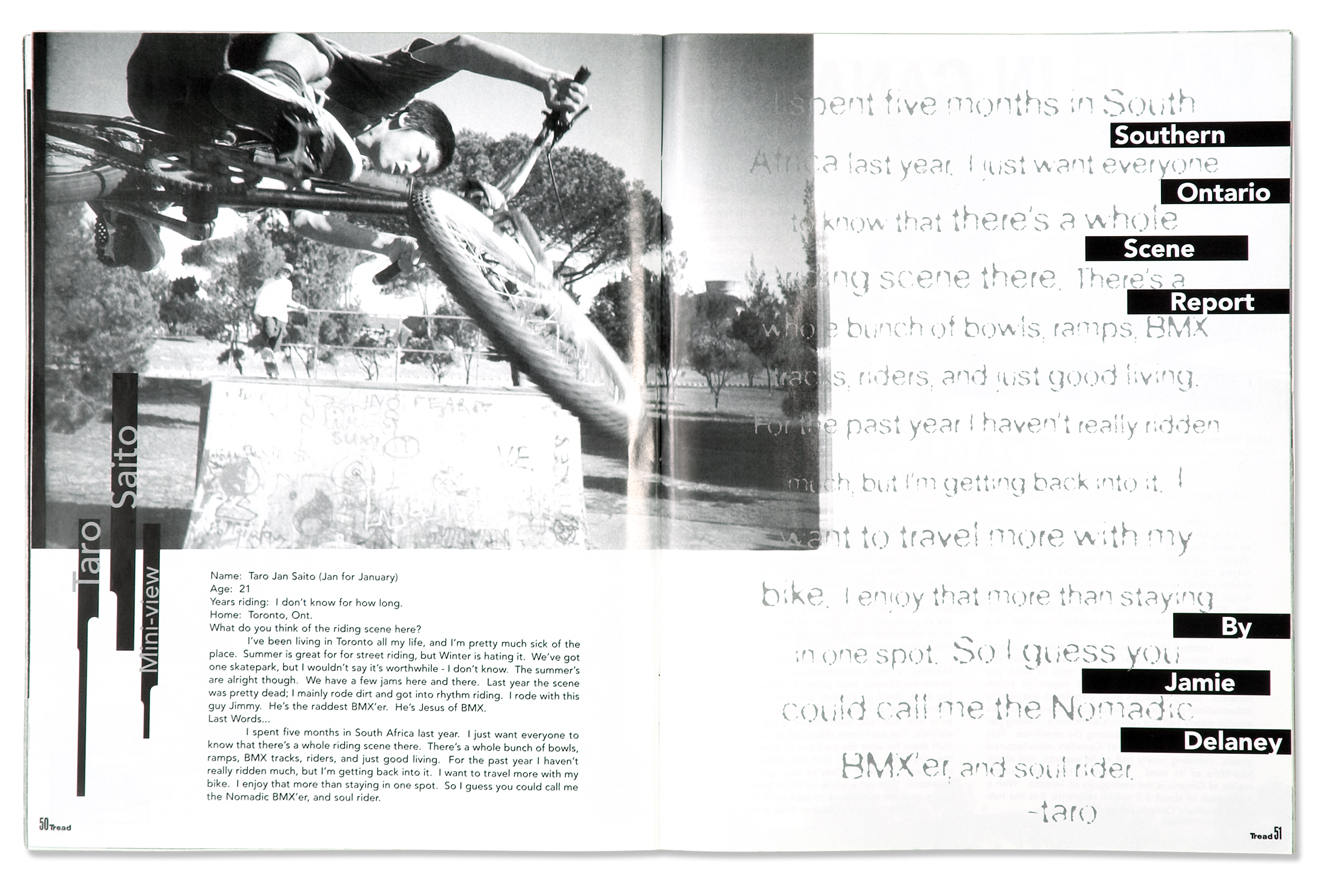 Taro
Saito
Mini-view
Name: Taro Jan Saito (Jan for January)
Age: 21
Years riding: I don't know for how long.
Home: Toronto, Ont.
What do you think of the riding scene here?
I've been living in Toronto all my life, and I'm pretty much sick of the
place. Summer is great for for street riding, but Winter is hating it. We've got
one skatepark, but I wouldn't say it's worthwhile - I don't know. The summer's
are alright though. We have a few jams here and there. Last year the scene
was pretty dead; I mainly rode dirt and got into rhythm riding. I rode with this
guy Jimmy. He's the raddest BMX'er. He's Jesus of BMX.
Last Words...
I spent five months in South Africa last year. I just want everyone to
know that there's a whole riding scene there. There's a whole bunch of bowls,
ramps, BMX tracks, riders, and just good living. For the past year I haven't
really ridden much, but I'm getting back into it. I want to travel more with my
bike. I enjoy that more than staying in one spot. So I guess you could call me
the Nomadic BMX'er, and soul rider.
50 Tread
I spent five months in South
Africa last year. I just want everyone
to know that there's a whole
riding scene there. There's a
whole bunch of bowls, ramps, BMX
tracks, riders, and just good living.
For the past year I haven't really ridden
much, but I'm getting back into it. I
want to travel more with my
bike. I enjoy that more than staying
in one spot. So I guess you
could call me the Nomadic
BMX'er, and soul rider.
-taro
Southern
Ontario
Scene
Report
By
Jamie
Delaney
Tread 51